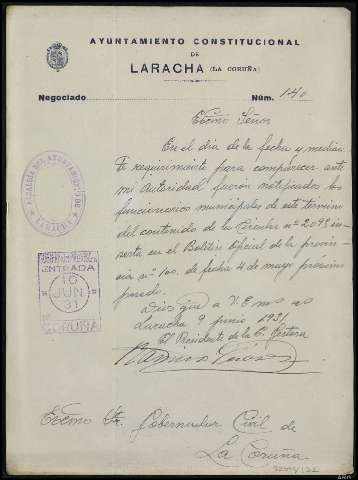 AYUNTAMIENTO CONSTITUCIONAL
DE
LARACHA (LA CORUÑA)
Negociado
Núm. 140
Excmo Señor
En el día de la fecha y median
te requirimiento para comparecer ante
mi Autoridad, fueron notificados los
funcionarios municipales de este término
del contenido de la Circular nº 2098 in-
serta en el Boletín Oficial de la provin-
cia nº 100, de fecha 4 de mayo próximo
pasado.
Dios gue a V.E. ms as
Laracha 9 junio 1931
El Presidente de la Cn Gestora
ALCALDÍA DEL AYUNTAMIENTO DE
LARACHA
ENTRADA
16
JUN
31
CORUÑA
Excmo Sr. Gobernador Civil de
La Coruña